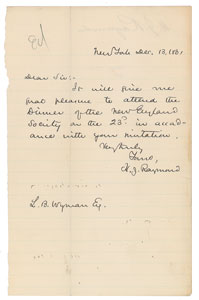 New York Dec. 13, 186
Dear Sir:-
It will give me
great pleasure to attend the
Dinner of the New England
Society on the 23d in accord-
ance with your invitation.
Very truly
Yours,
H. J. Raymond
L. B. Wyman Esq.